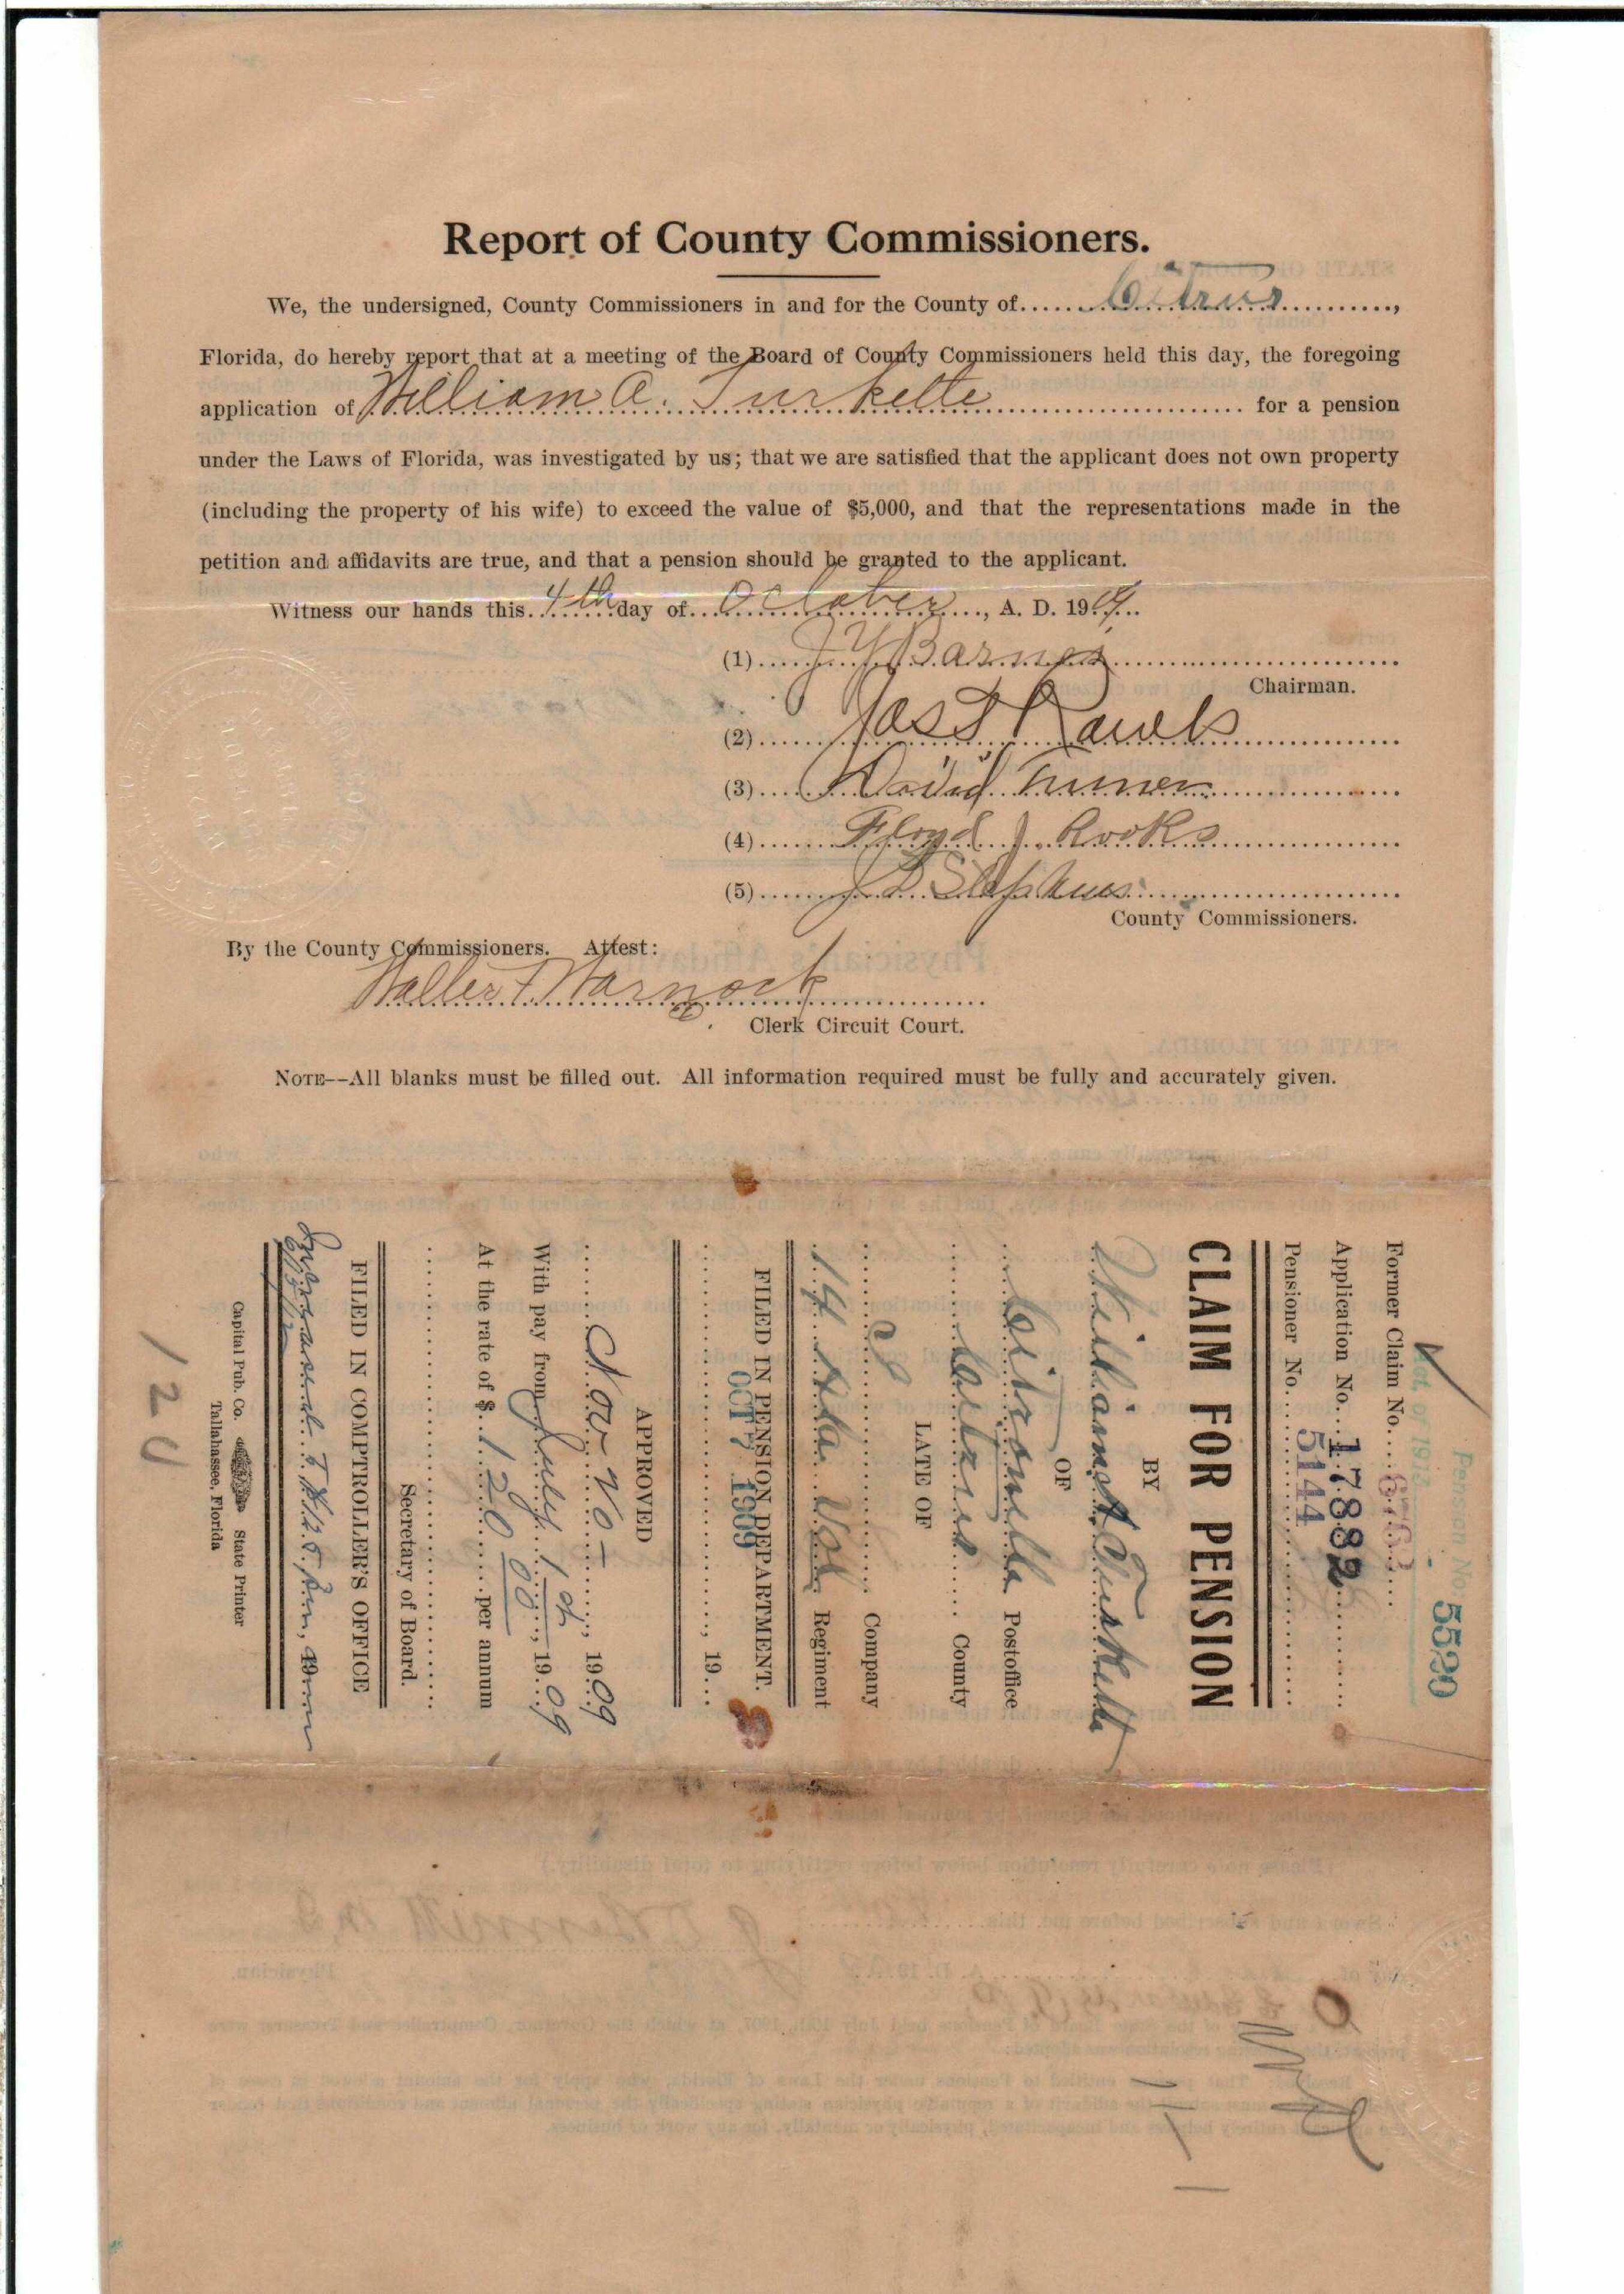 Report of County Commissioners.
We, the undersigned, County Commissioners in and for the County of Citrus,
Florida, do hereby report that at a meeting of the Board of County Commissioners held this day, the foregoing
application of William A. Turkette for a pension
under the Laws of Florida, was investigated by us; that we are satisfied that the applicant does not own property
(including the property of his wife) to exceed the value of $5,000, and that the representations made in the
petition and affidavits are true, and that a pension should be granted to the applicant.
Witness our hands this 4th day of October, A. D. 19
(1) J Y Barnes
Chairman.
(2) Jas T Rawls
(3) David Turner
(4) Floyd J. Rooks
(5) J D Stephens
County Commissioners.
By the County Commissioners. Attest:
Walter F Warnock
Clerk Circuit Court.
NOTE--All blanks must be filled out. All information required must be fully and accurately given.
Pension No. 5520
Act of 1913
Former Claim No.
Application No. 17882
Pensioner No. 5144
CLAIM FOR PENSION
BY
William A Turkette
OF
Citronelle Postoffice
Citrus County
LATE OF
Company
14 Ala. Vol Regiment
FILED IN PENSION DEPARTMENT.
OCT 7 1909
, 19
APPROVED
Nov 20 -, 1909
With pay from July 1st, 1909
At the rate of $ 120 00 per annum
Secretary of Board.
FILED IN COMPTROLLER'S OFFICE
Increased to $125. Per Ann
Capital Pub. Co. State Printer
Tallahassee, Florida
120